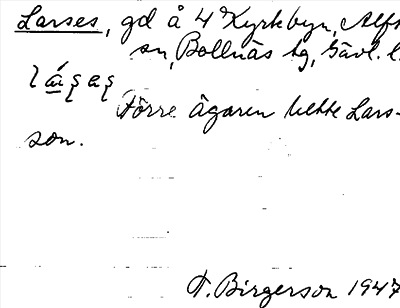 Larses, gd å 4 Kyrkbyn, Alfta
sn, Bollnäs tg, Gävl. l.
Förre ägaren hette Lars-
son.
T. Birgerson 1947